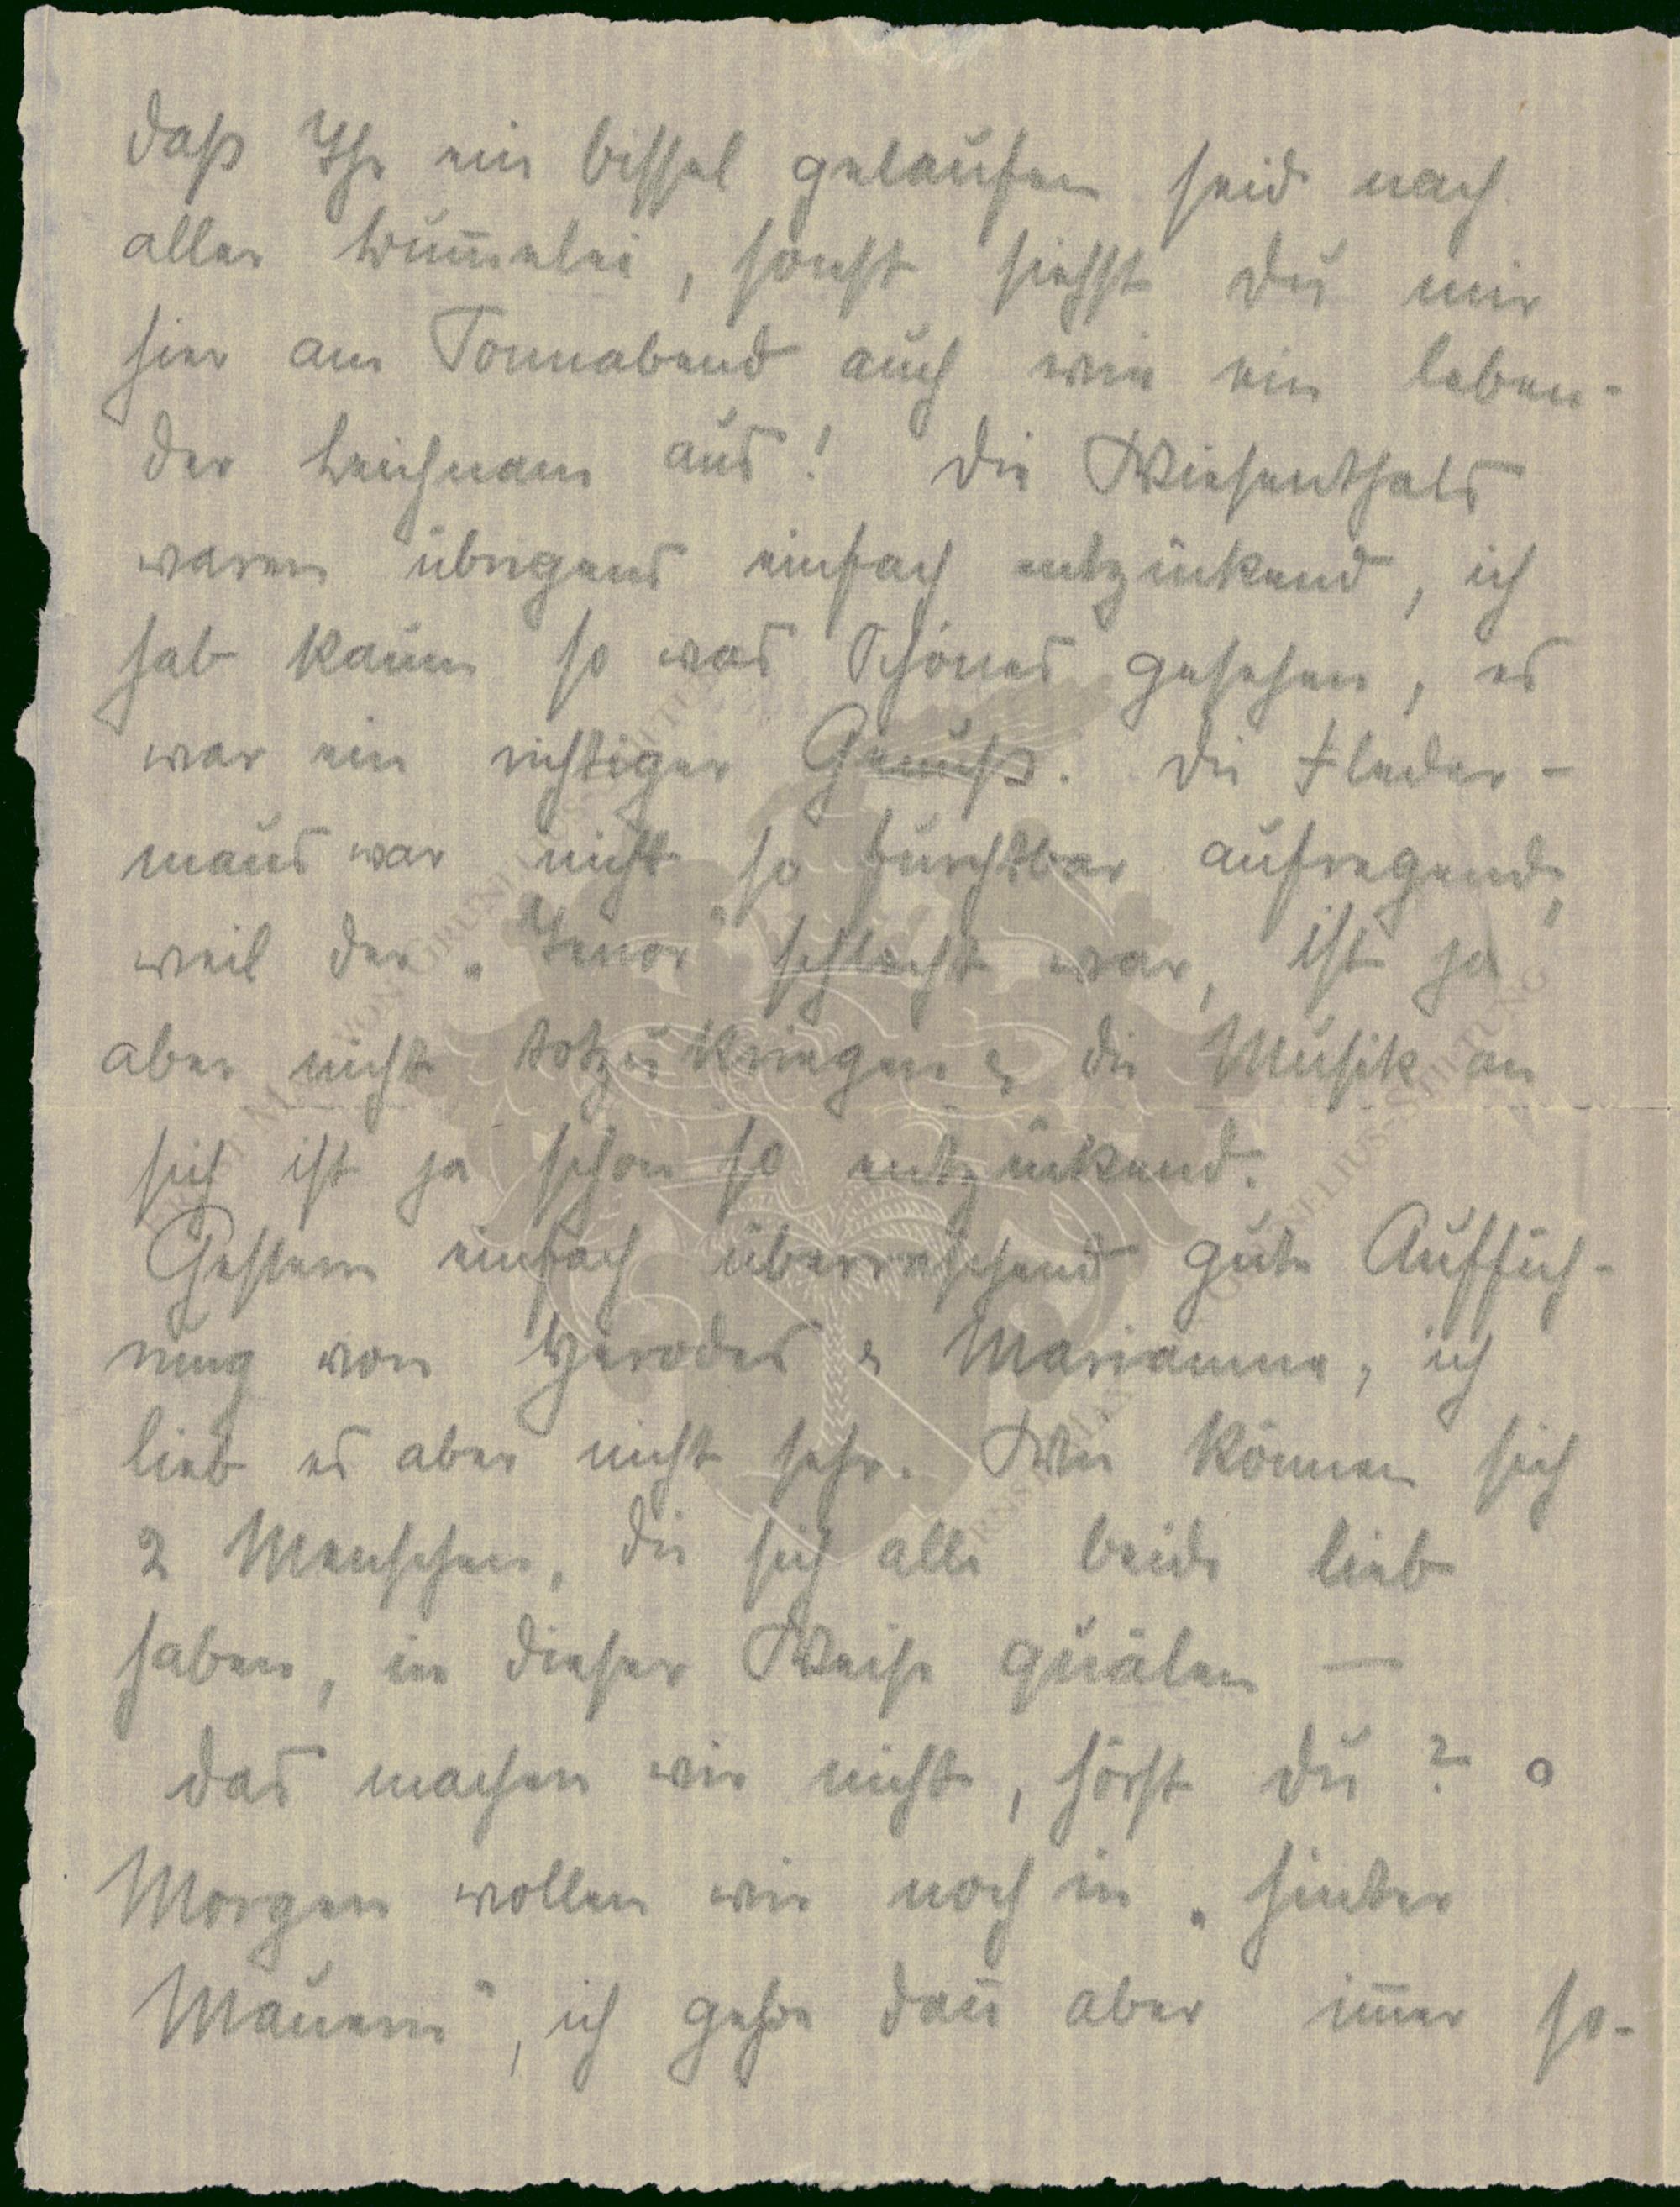 daß Ihr ein bissel gelaufen seid nach
aller Lüm̅elei, sonst siehst Du mir
hier am Sonnabend auch wie ein leben-
der Leichnam aus! Die Wiesenthals
waren übrigens einfach entzückend, ich
hab kaum so was Schönes gesehen, es
war ein richtiger Genuß. Die Fleder-
maus war nicht so furchtbar aufregend,
weil der „Tenor“ schlecht war, ist ja
aber nicht totzukriegen & die Musik an
sich ist ja schon so entzückend.
Gestern einfach überraschend gute Auffüh-
rung von Herodes & Mariamne, ich
lieb es aber nicht sehr. Wie können sich
2 Menschen, die sich alle beide lieb
haben, in dieser Weise quälen —
das machen wir nicht, hörst Du?
Morgen wollen wir noch in „hinter
Mauern“, ich gehe dan̅ aber im̅er so-